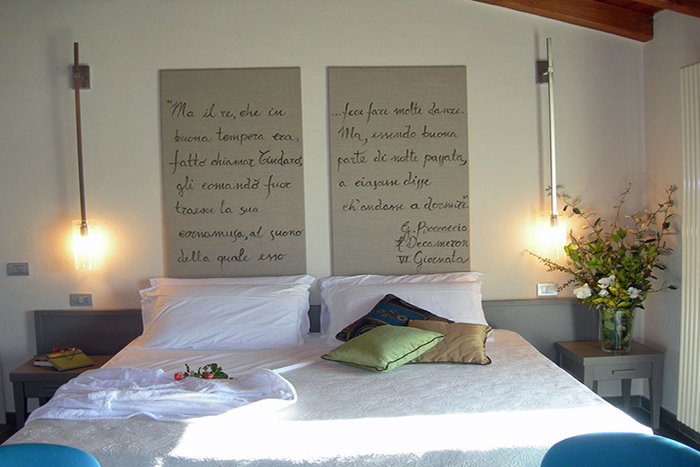 "Ma il re, che in
buona tempera era,
fatto chiamar Tindaro,
gli comandò fuor
traesse la sua
cornamusa, al suono
della quale esso
...feci fari molte danze.
Ma, essendo buona
parte di notte passata,
a ciascun disse
ch'andasse a dormire".
G. Boccaccio
Il Decameron
VI Giornata